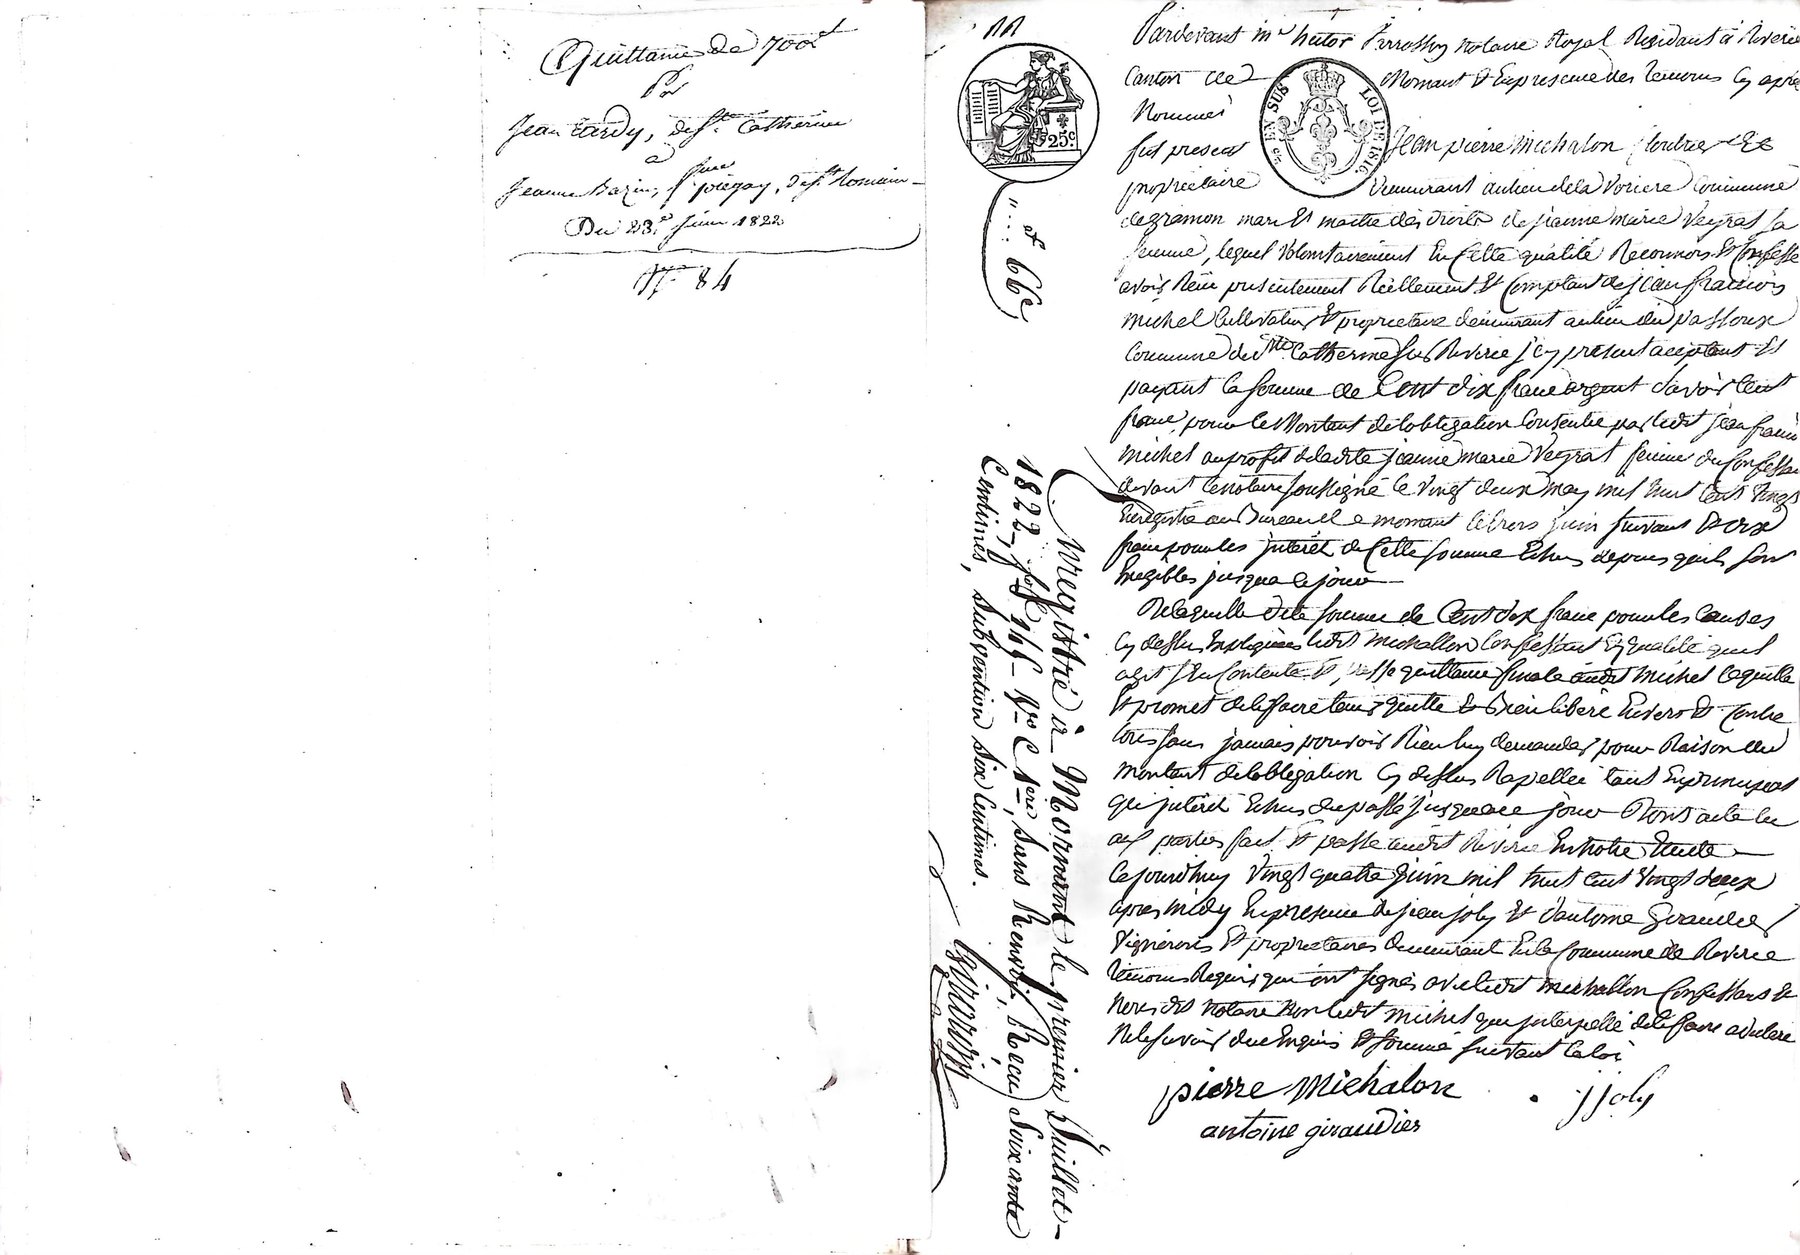 Quittance de 700f
Par
Jean Tardy, de Ste Catherine
à
Jeanne Bazin, fme piégay, de St Romain
Du 23e juin 1822
N° 84
Pardevant me hector Perrossey notaire Royal Residant à Riverie
Canton de Mornant Et En presence des temoins Cy après
Nommés
fut present Jean pierre Michalon
proprietaire demeurant au lieu de la Voriere Commune
de gramon mari Et maitre des droits de jeanne marie Veyrat sa
femme, lequel Volontairement En Cette qualité Reconnois Et Confesse
avoir Reçu presentement Réellement Et Comptant de jean françois
michel Cultivateur Et proprietaire demeurant au lieu du passoux
Commune de Ste Catherine sur Riverie icy present acceptant Et
payant la somme de Cent dix franc argent savoir Cent
franc pour le Montant de l'obligation Consentie par ledit jean françois
michel au profit de ladite jeanne marie Veyrat femme du Confessant
devant le notaire soussigné le Vingt deux may mil huit Cent Vingt
Enregistré au Bureau de mornant le trois juin suivant Et dix
franc pour les interêt de Cette somme Echus depuis quils sont
Exigibles jusqua ce jour
De laquelle dite somme de Cent dix franc pour les Causes
Cy dessus Expliquées ledit Michallon Confessant En qualité quil
agit s'en Contente Et passe quittance finale audit Michel laquelle
Et promet de le faire tenir quitte Et Bien libéré Envers Et Contre
tous sans jamais pouvoir Rien luy demander pour Raison du
montant de l'obligation Cy dessus Rapellée tant En principal
qu'interet Echus du passé jusqua ce jour Dont acte lu
aux parties fait Et passé audit Riverie En notre Etude
Cejourdhuy Vingt quatre juin mil huit Cent Vingt deux
apres midy En presence de jean joly Et d'antoine Giraudier
Vignerons Et proprietaires demeurant En la Commune de Riverie
temoins Requis qui ont signés avec ledit michallon Confessant Et
Nous dit notaire Non ledit michel qui interpellé de le faire a declaré
Ne le savoir de ce Enquis Et sommé suivant la loi
pierre Michalon
j joly
antoine giraudier
25 c.
EN SUS
LOI DE 1816.
" .. et 66c
Enregistré à Mornant le premier Juillet
1822, fo 116 Vo C 1ere, sans Renvoi, Reçu Soixante
Centimes, subvention six Centimes.